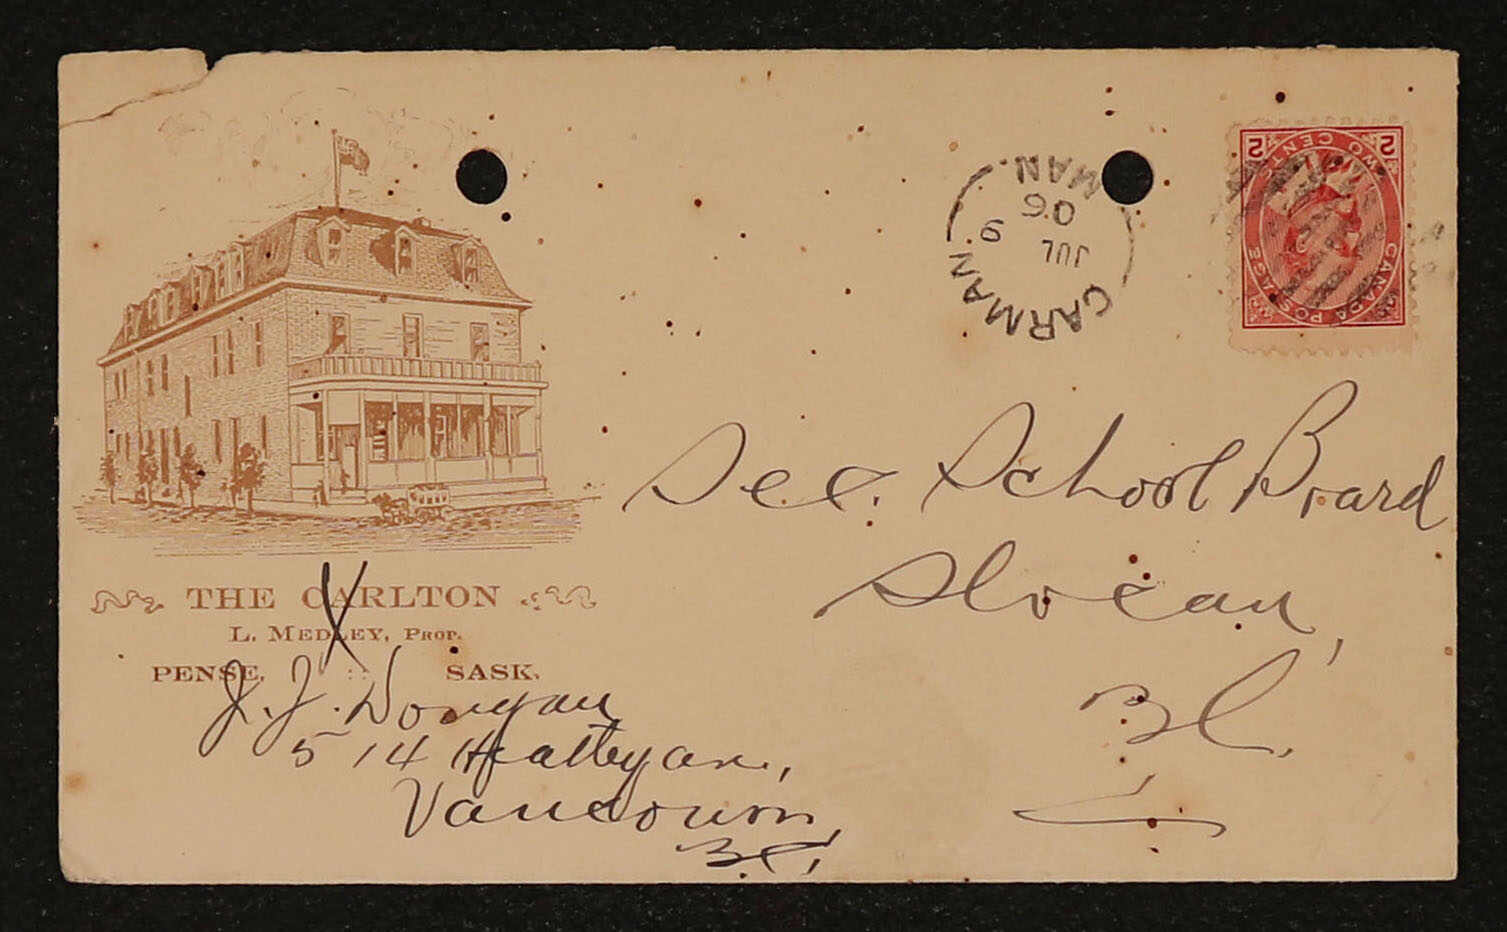 THE CARLTON
L. MEDLEY, PROP.
PENSE, :: SASK.
J. J. Dongan
514
Vancouver,
BC,
CARMAN
JUL 9
06
MAN.
2 2
TWO CENTS
CANADA POSTAGE
Sec. School Board
Slocan,
BC.